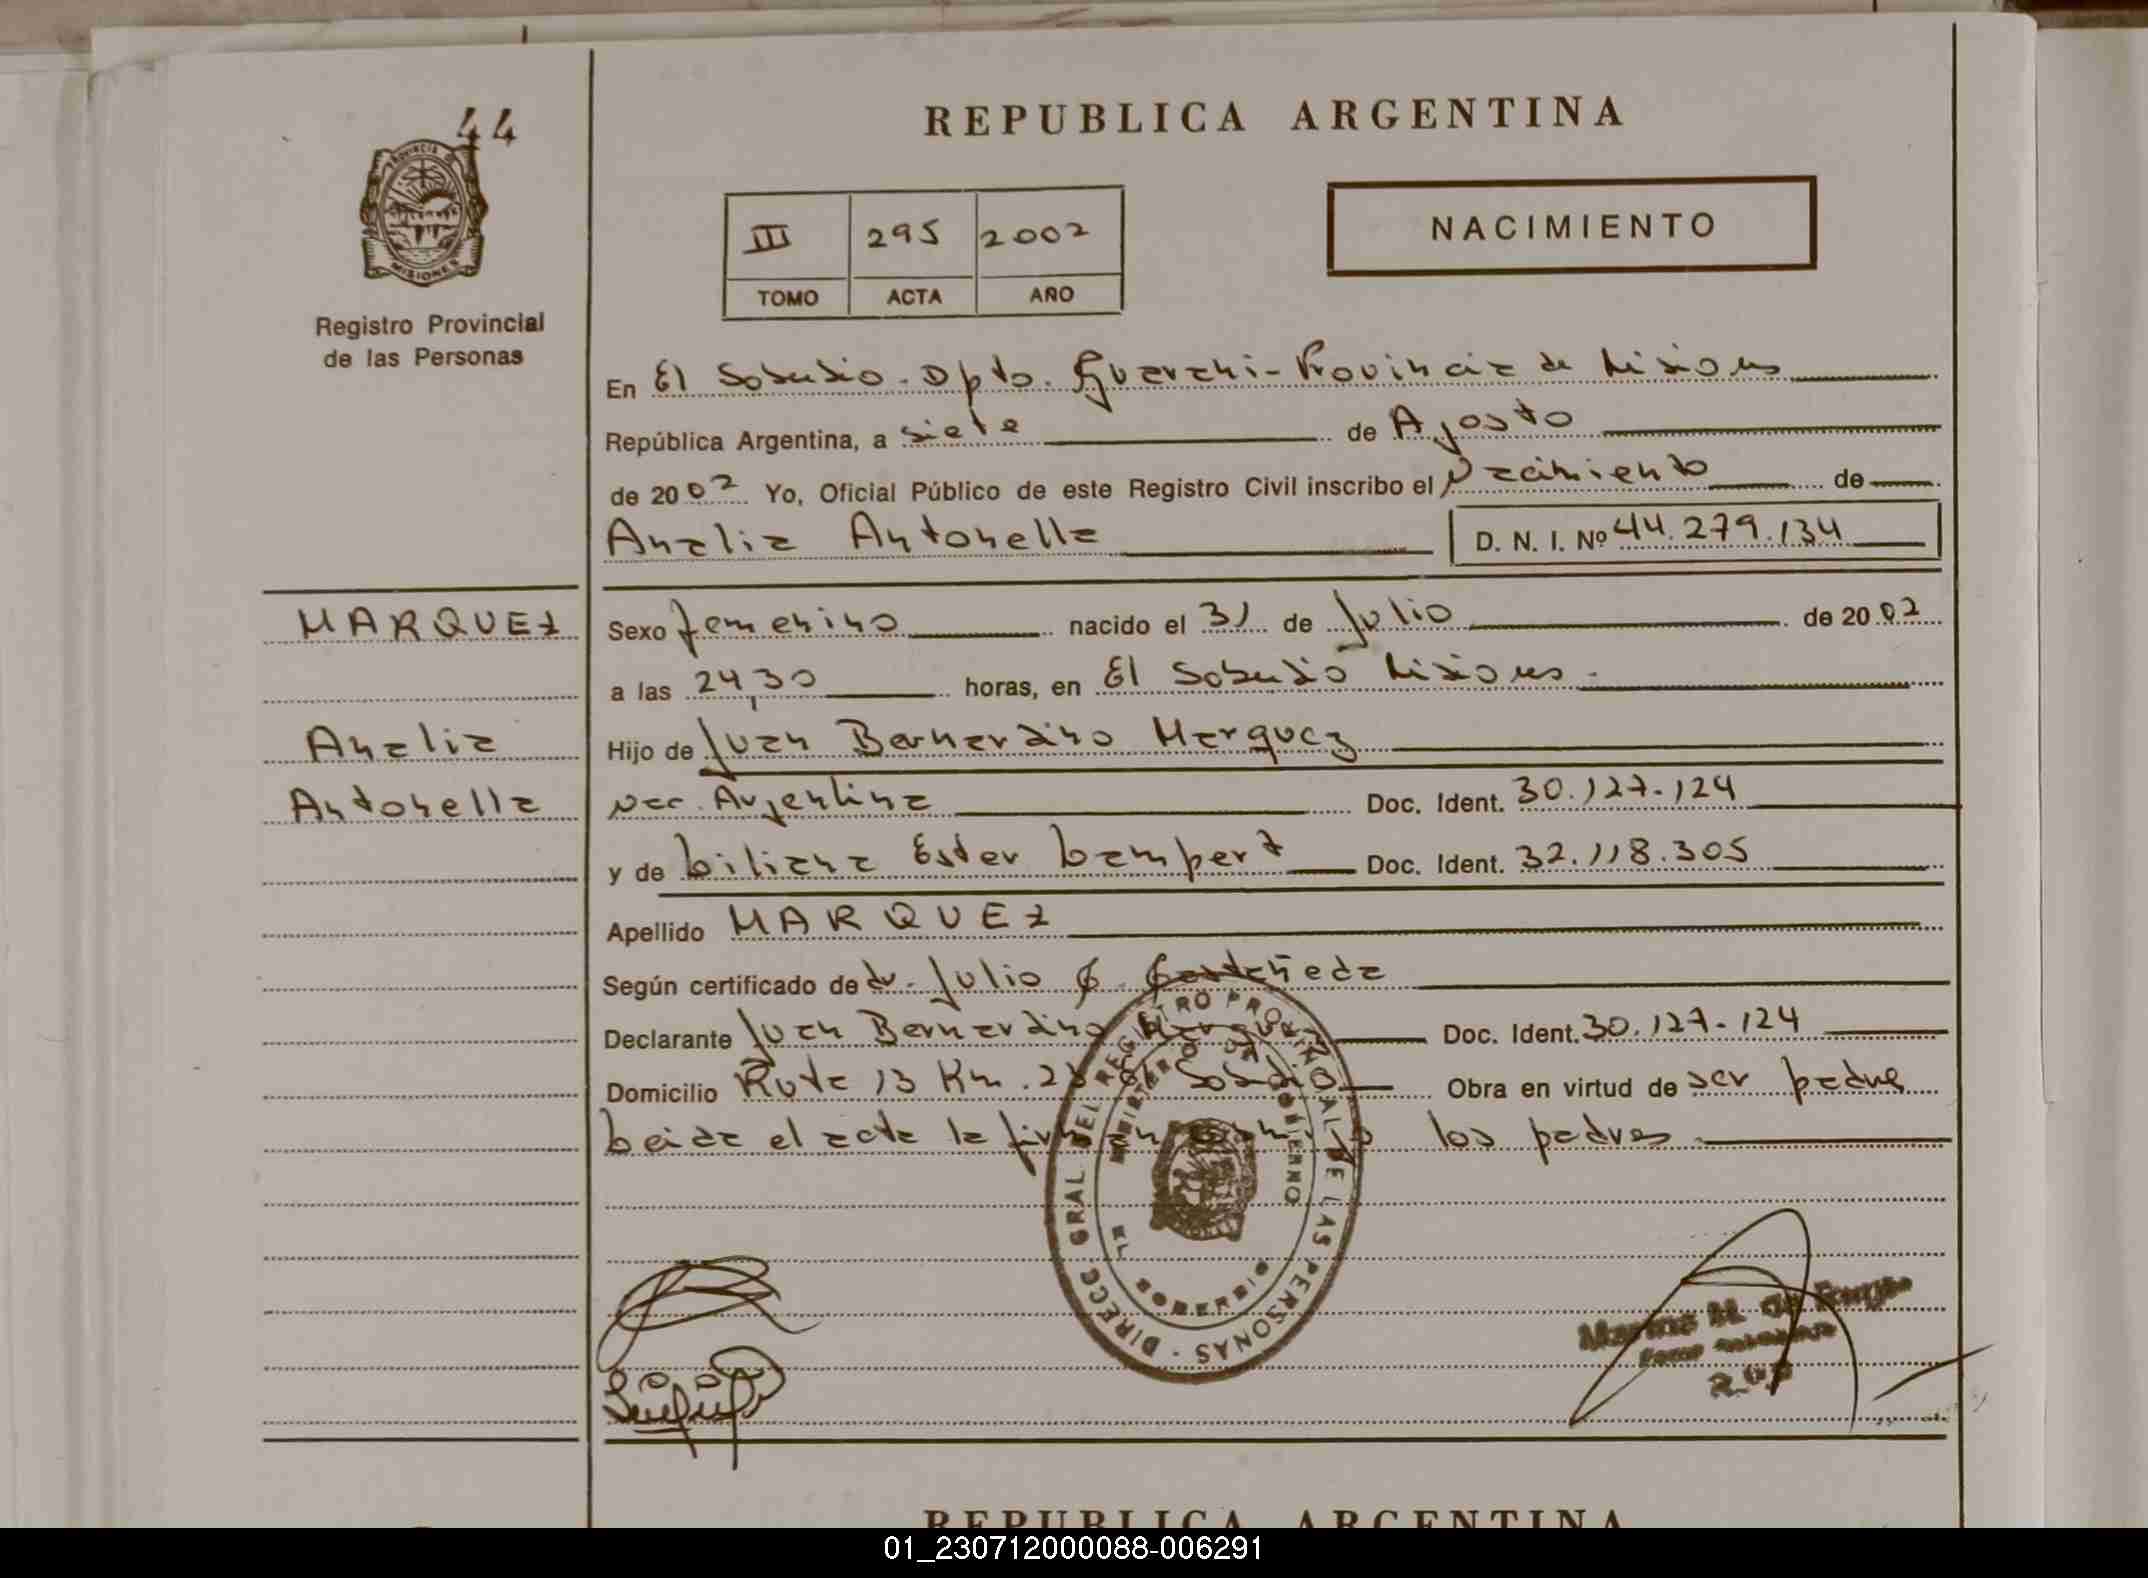 44
PROVINCIA DE
MISIONES
Registro Provincial
de las Personas
MARQUEZ
Analia
Antonella
REPUBLICA ARGENTINA
III 295 2002
TOMO ACTA AÑO
NACIMIENTO
En El Soberbio. Dpto. Guarani - Provincia de Misiones
República Argentina, a siete de Agosto
de 2002 Yo, Oficial Público de este Registro Civil inscribo el Nacimiento de
Analia Antonella D. N. I. Nº 44.279.134
Sexo femenino nacido el 31 de Julio de 2002
a las 24,30 horas, en El Soberbio Misiones.
Hijo de Juan Bernardino Marquez
Nac. Argentina Doc. Ident. 30.127.124
y de Liliana Ester Lampert Doc. Ident. 32.118.305
Apellido MARQUEZ
Según certificado de Dr. Julio C. Castañeda
Declarante Juan Bernardino Marquez Doc. Ident. 30.127.124
Domicilio Ruta 13 Km. 28 El Soberbio Obra en virtud de ser padre
Leida el acta la firman los padres
DIRECC GRAL DEL REGISTRO PROVINCIAL DE LAS PERSONAS
MINISTERIO DE GOBIERNO
EL SOBERBIO
REPUBLICA ARGENTINA
01_230712000088-006291